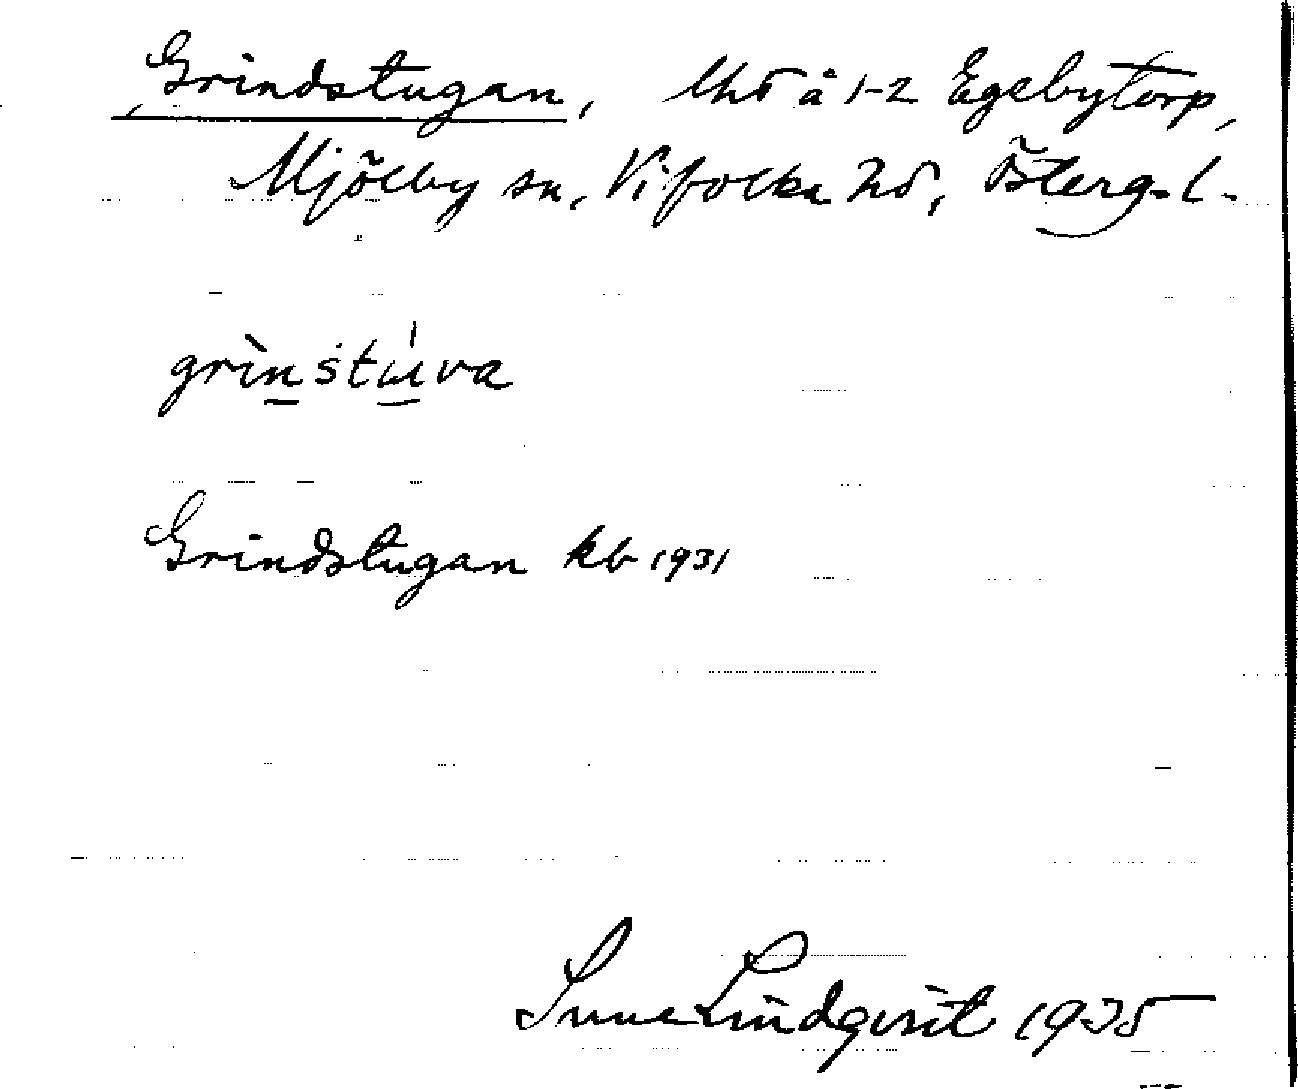 Grindstugan, lhd å 1-2 Egebytorp,
Mjölby sn, Vifolka hd, Österg. l.
grìnstúva
Grindstugan kb 1931
Sune Lindqvist 1935